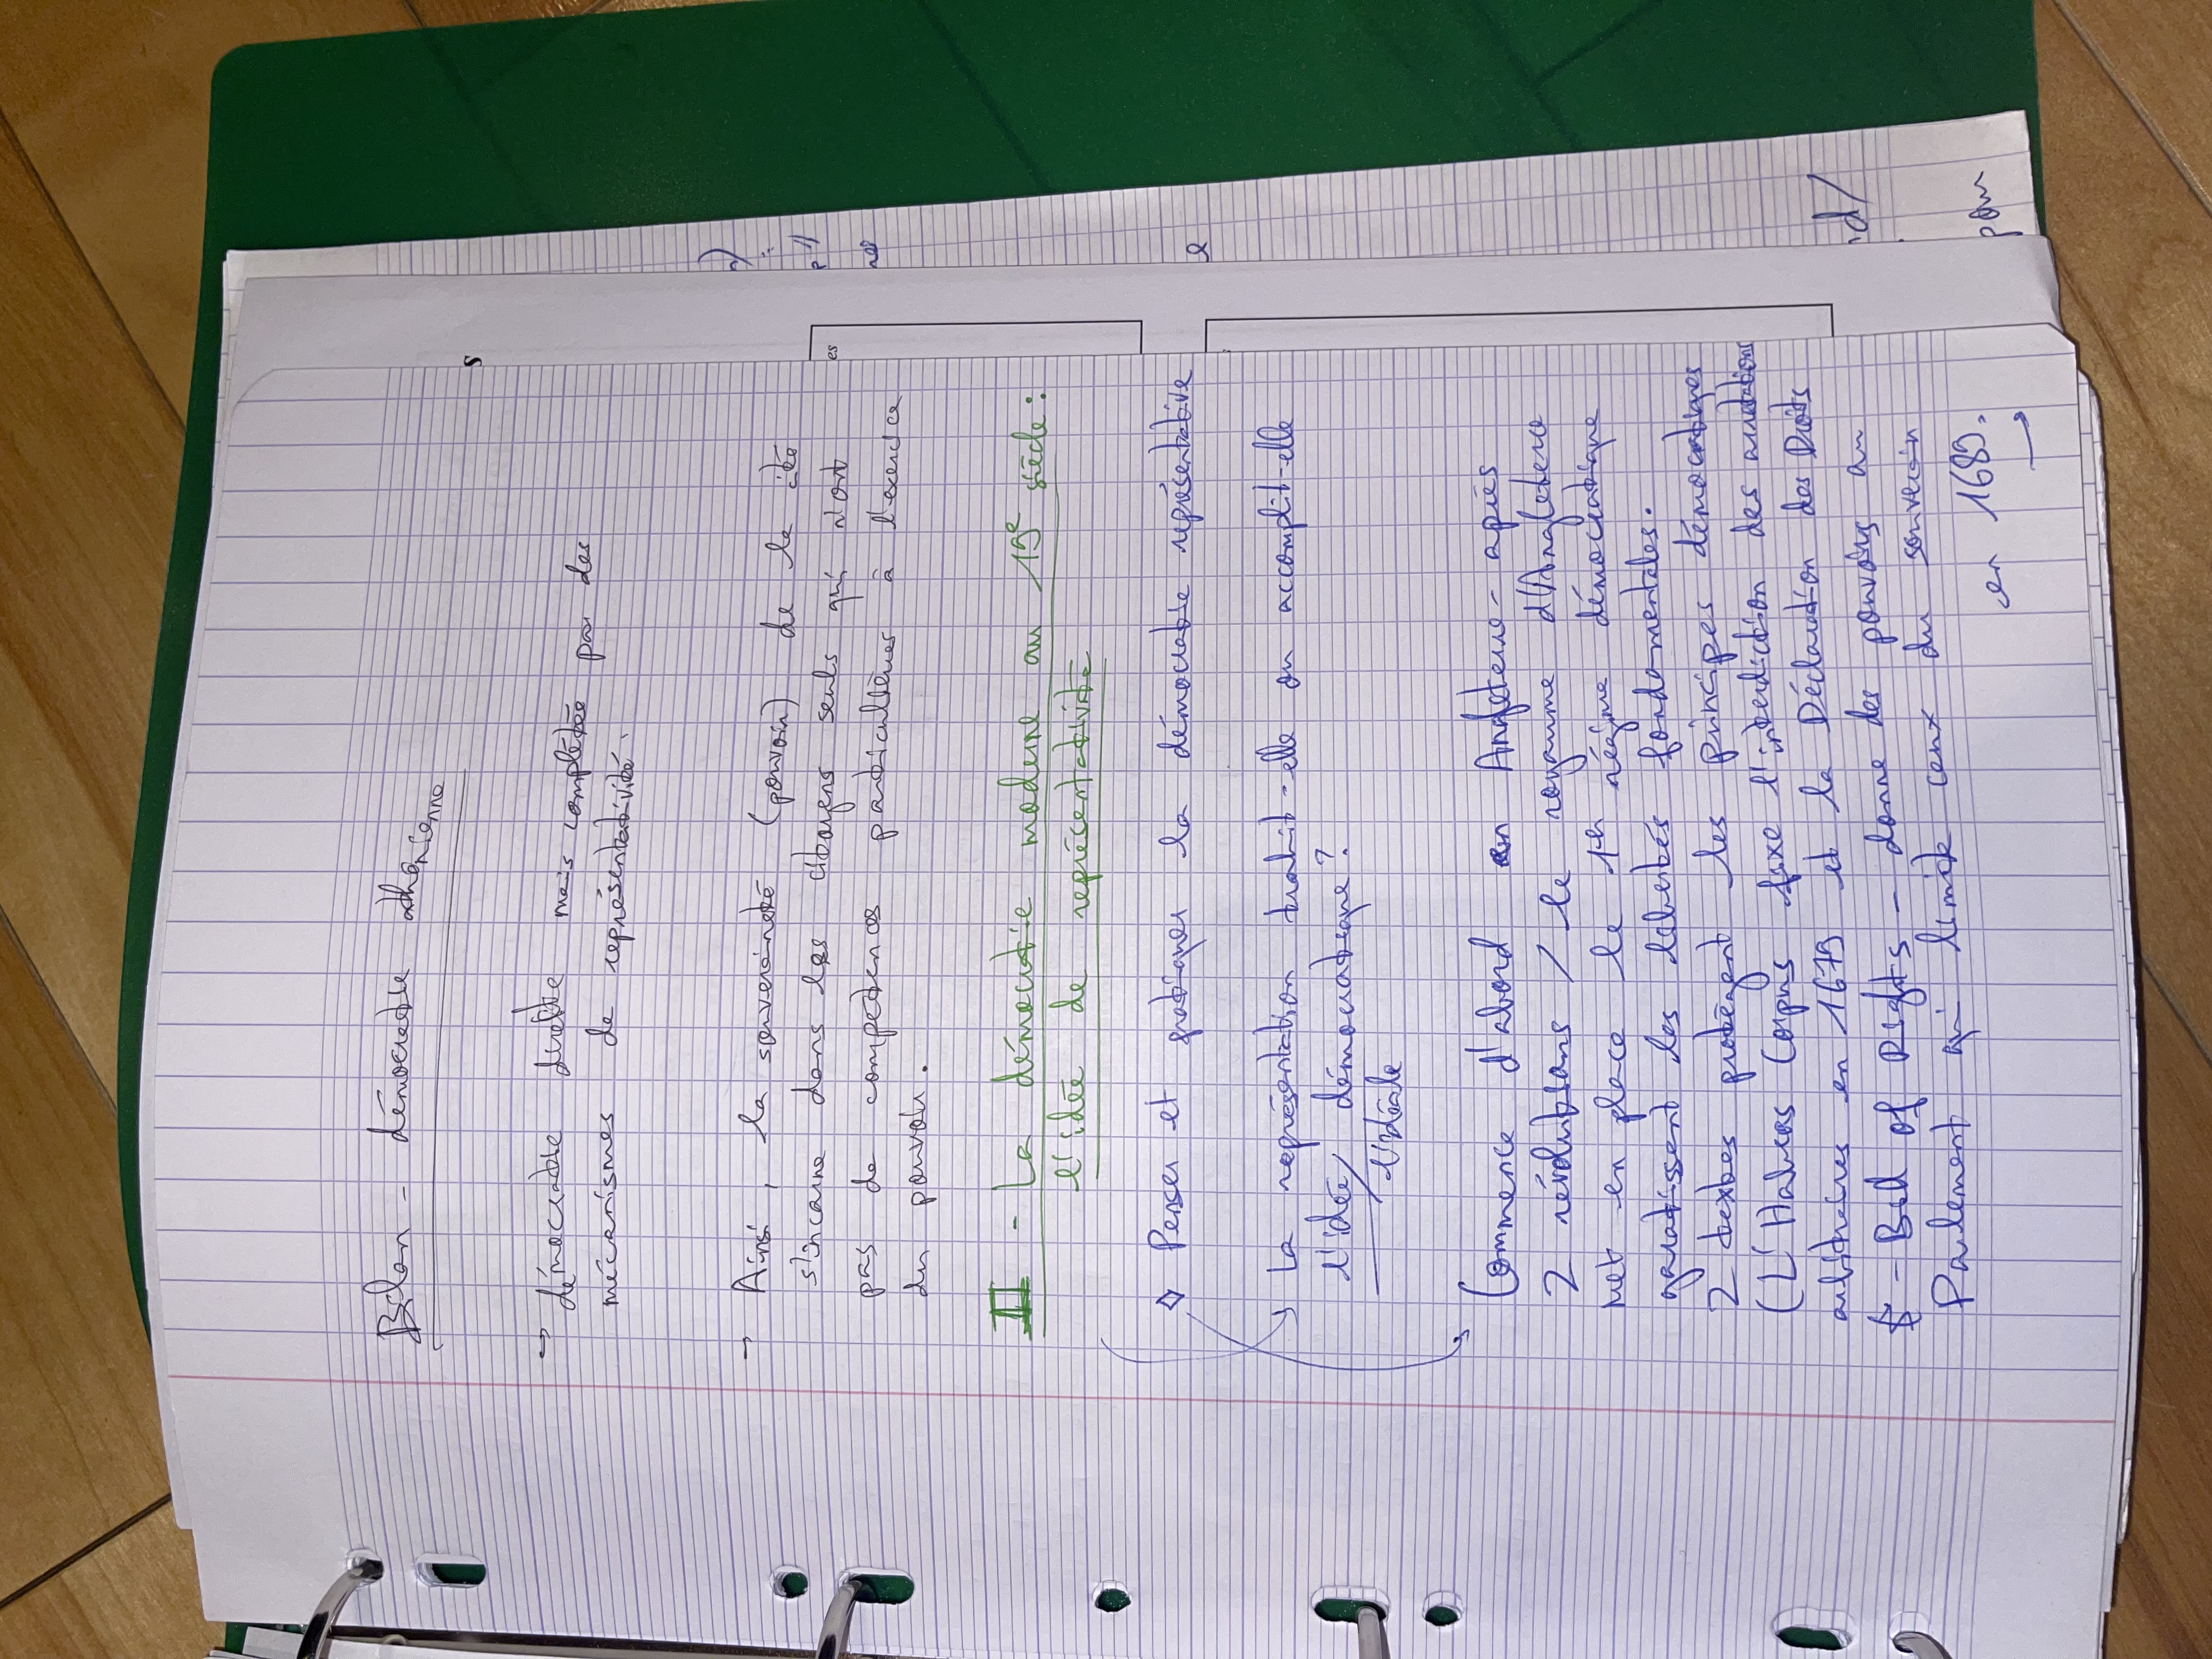 Bilan - démocratie athénienne
→ démocratie directe mais complétée par des
mécanismes de représentativité.
→ Ainsi, la souveraineté (pouvoir) de la cité
s'incarne dans les citoyens seuls qui n'ont
pas de compétences particulières à l'exercice
du pouvoir.
II - La démocratie moderne au 19e siècle :
l'idée de représentativité
◇ Penser et pratiquer la démocratie représentative
La représentation trahit-elle ou accomplit-elle
l'idée/ démocratique ?
l'idéale
Commence d'abord en Angleterre - après
2 révolutions / le royaume d'Angleterre
met en place le 1er régime démocratique
garatissent les libertés fondamentales.
2 textes protègent les principes démocratiques
(L'Habeas Corpus fixe l'interdiction des arrestations
arbitraires en 1679 et la Déclaration des Droits
- Bill of Rights - donne des pouvoirs au
Parlement qui limite ceux du souverain
en 1689.
→
s
es
e
pour